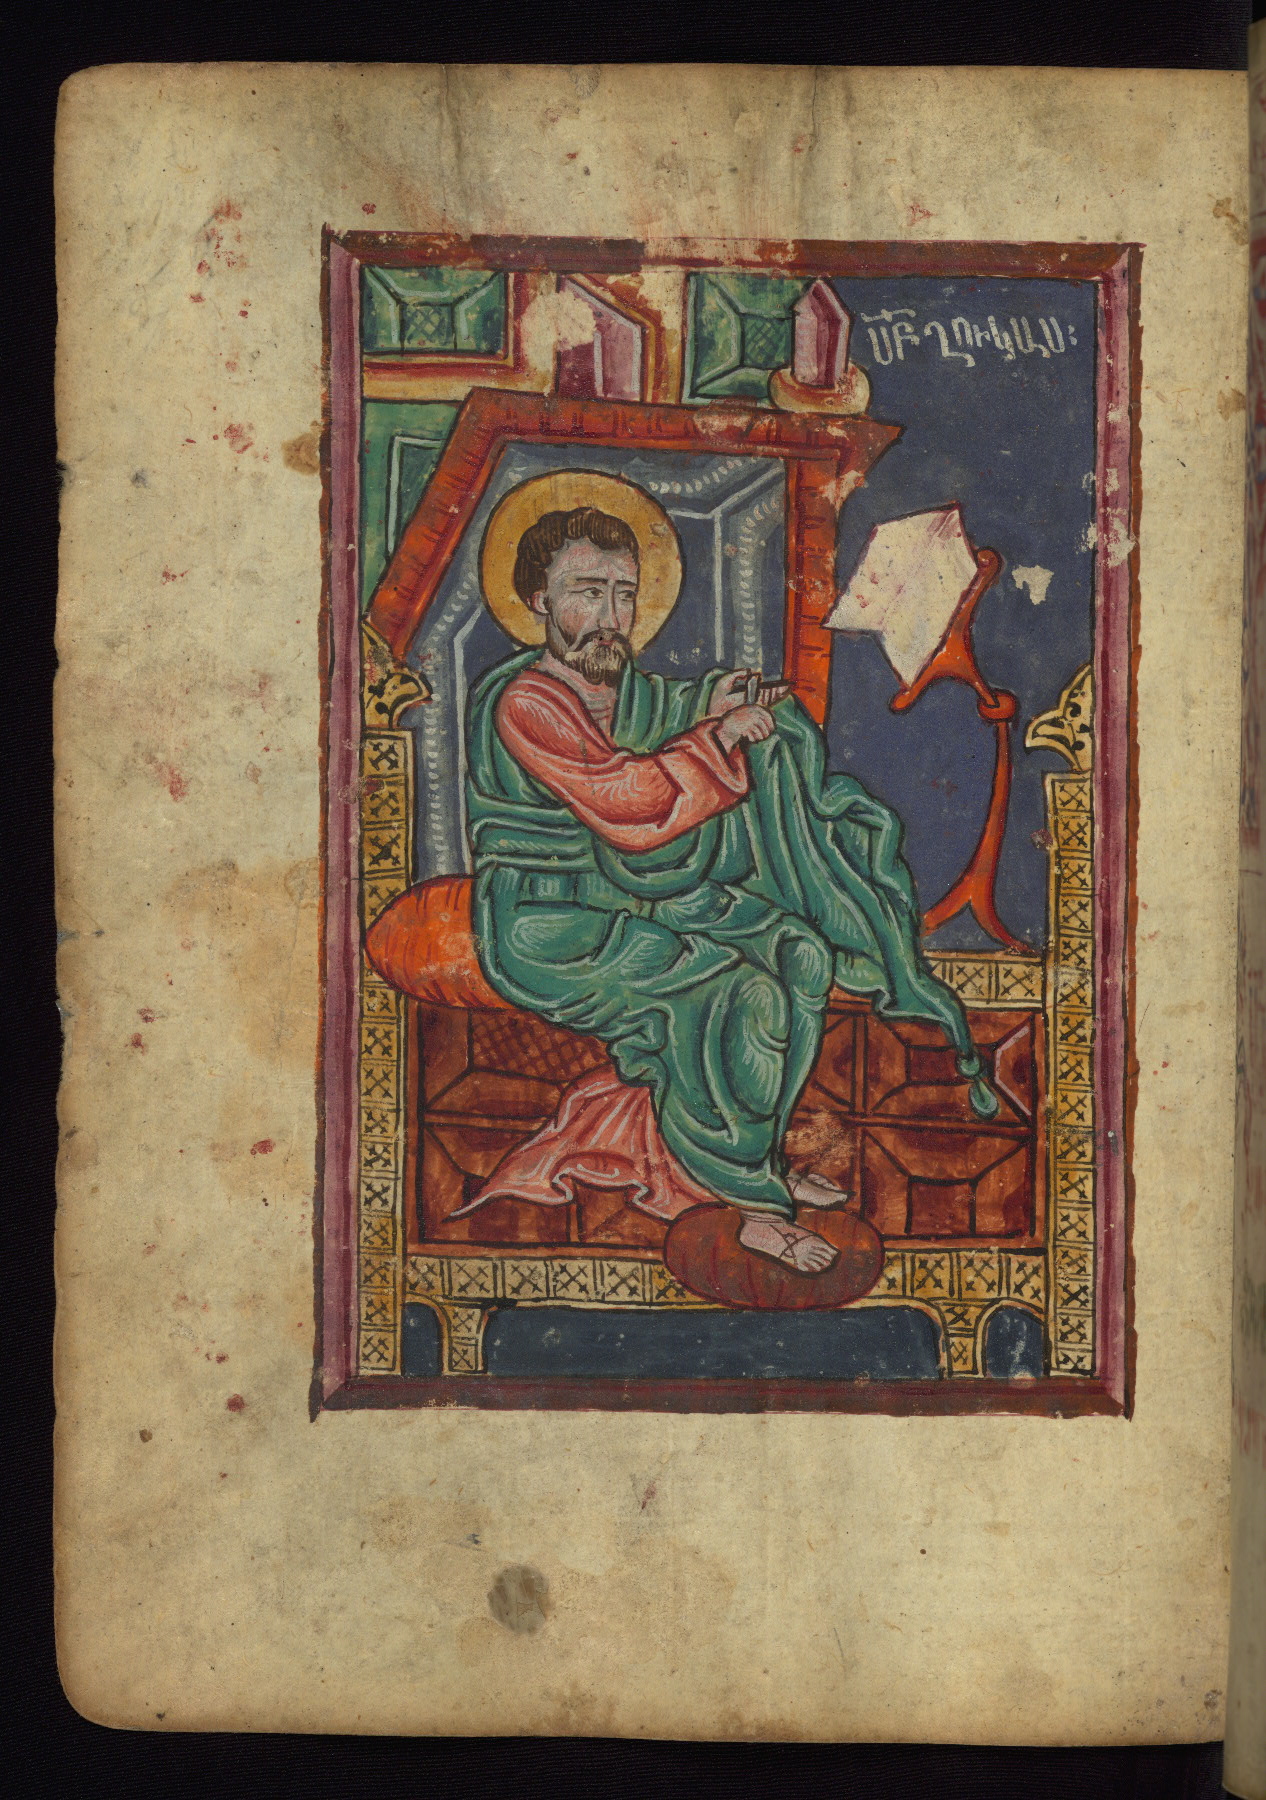 ՍԲ ՂՈՒԿԱՍ: